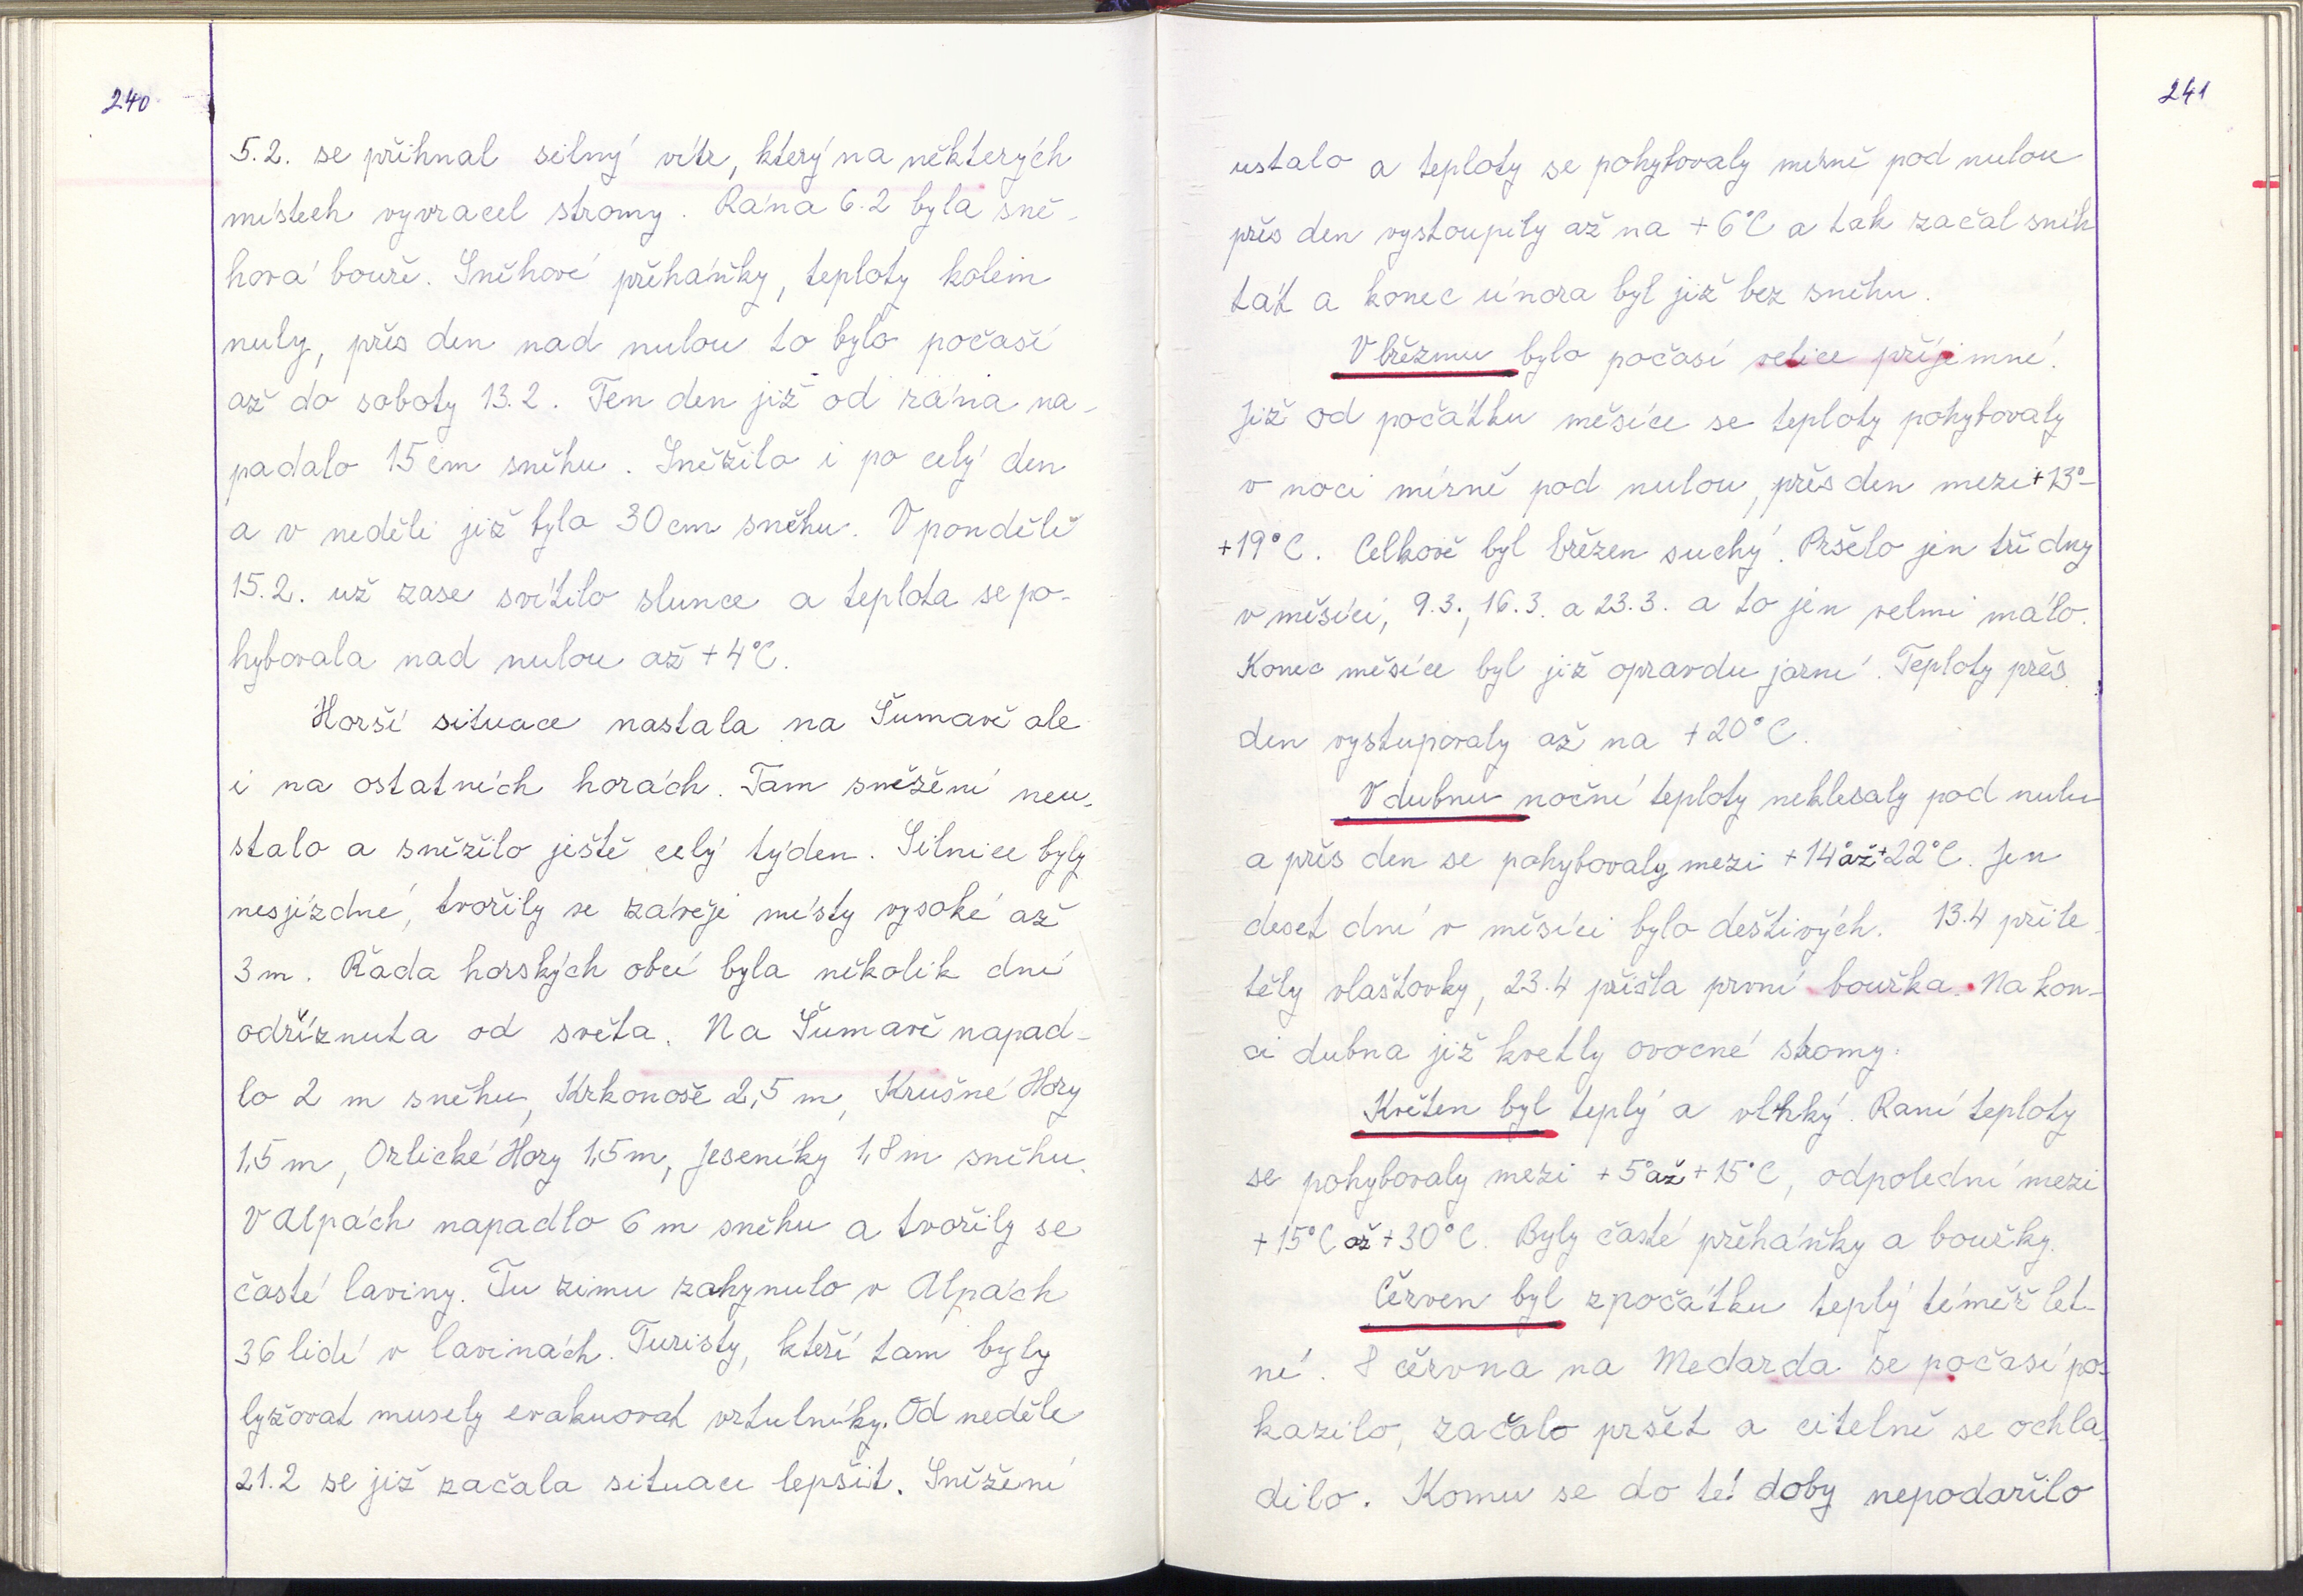 240
5.2. se přihnal silný vítr, který na některých
místech vyvracel stromy. Rána 6.2 byla sně-
hová bouře. Sněhové přeháňky, teploty kolem
nuly, přes den nad nulou to bylo počasí
až do soboty 13.2. Ten den již od rána na-
padalo 15 cm sněhu. Sněžilo i po celý den
a v neděli již bylo 30 cm sněhu. V pondělě
15.2. už zase svítilo slunce a teplota se po-
hybovala nad nulou až +4°C.
Horší situace nastala na Šumavě ale
i na ostatních horách. Tam sněžění neu-
stalo a sněžilo ještě celý týden. Silnice byly
nesjízdné, tvořily se závěje místy vysoké až
3 m. Řada horských obcí byla několik dní
odříznuta od světa. Na Šumavě napad-
lo 2 m sněhu, Krkonoše 2,5 m, Krušné Hory
1,5 m, Orlické Hory 1,5 m, Jeseníky 1,8 m sněhu.
V Alpách napadlo 6 m sněhu a tvořily se
časté laviny. Tu zimu zahynulo v Alpách
36 lidí v lavinách. Turisty, kteří tam byly
lyžovat musely evakuovat vrtulníky. Od neděle
21.2 se již začala situace lepšit. Sněžení
241
ustalo a teploty se pohybovaly mírně pod nulou
přes den vystoupily až na +6°C a tak začal sníh
tát a konec února byl již bez sněhu.
V březmu bylo počasí velice příjemné.
Již od počátku měsíce se teploty pohybovaly
v noci mírně pod nulou, přes den mezi +13°-
+19°C. Celkově byl březen suchý. Pršelo jen tři dny
v měsíci, 9.3., 16.3. a 23.3. a to jen velmi málo.
Konec měsíce byl již opravdu jarní. Teploty přes
den vystupovaly až na +20°C.
V dubnu noční teploty neklesaly pod nulu
a přes den se pohybovaly mezi +14° až +22°C. Jen
deset dní v měsíci bylo deštivých. 13.4 přile-
těly vlaštovky, 23.4 přišla první bouřka. Na kon-
ci dubna již kvetly ovocné stromy.
Květen byl teplý a vlhký. Raní teploty
se pohybovaly mezi +5° až +15°C, odpolední mezi
+15°C až +30°C. Byly časté přeháňky a bouřky.
Červen byl zpočátku teplý téměř let-
ní. 8 června na Medarda se počasí po-
kazilo, začalo pršet a citelně se ochla-
dilo. Komu se do té doby nepodařilo